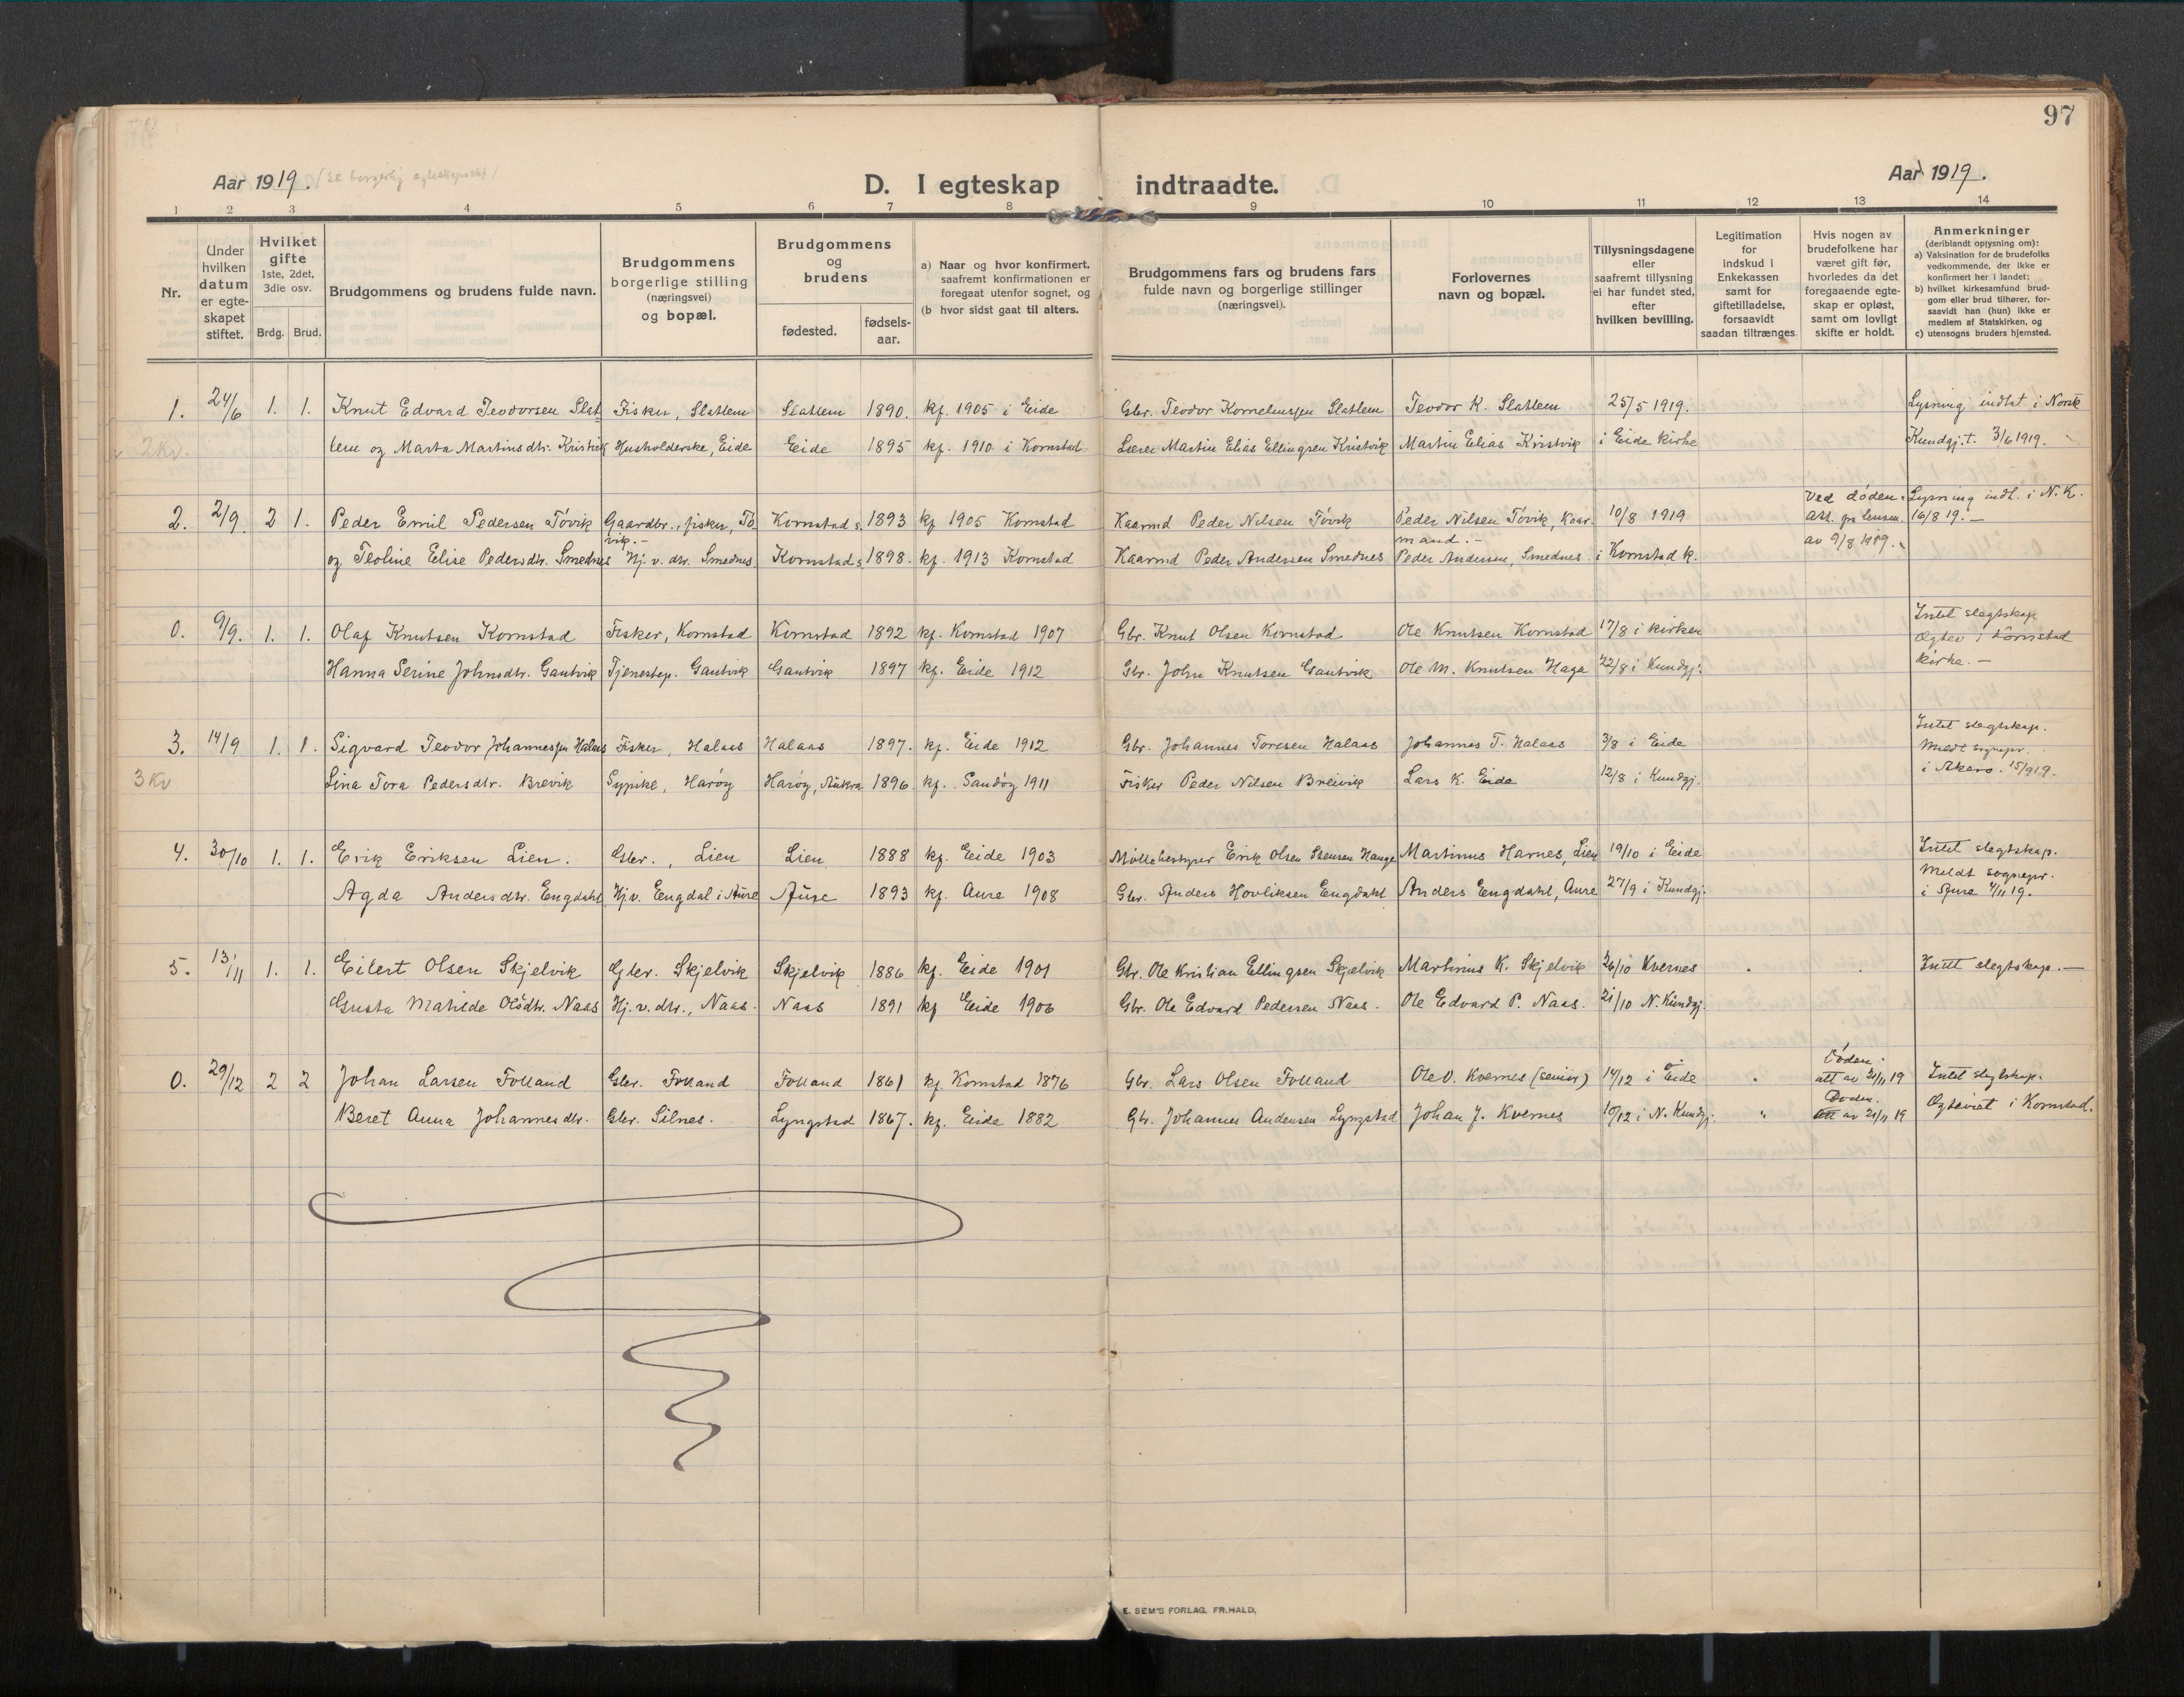 97
Aar 1919. (se borgerlig egteskapsstift)
D. I egteskap indtraadte.
Aar 1919.
1 2 3 4 5 6 7 8 9 10 11 12 13 14
Nr.
Under hvilken datum er egte-skapet stiftet.
Hvilket gifte 1ste, 2det, 3die osv.
Brdg. Brud.
Brudgommens og brudens fulde navn.
Brudgommens borgerlige stilling (næringsvei) og bopæl.
Brudgommens og brudens
fødested.
fødsels-aar.
a) Naar og hvor konfirmert, saafremt konfirmationen er foregaat utenfor sognet, og
(b hvor sidst gaat til alters.
Brudgommens fars og brudens fars fulde navn og borgerlige stillinger (næringsvei).
Forlovernes navn og bopæl.
Tillysningsdagene eller saafremt tillysning ei har fundet sted, efter hvilken bevilling.
Legitimation for indskud i Enkekassen samt for giftetilladelse, forsaavidt saadan tiltrænges
Hvis nogen av brudefolkene har været gift før, hvorledes da det foregaaende egte-skap er opløst, samt om lovligt skifte er holdt.
Anmerkninger (deriblandt oplysning om):
a) Vaksination for de brudefolks vedkommende, der ikke er konfirmert her i landet;
b) hvilket kirkesamfund brud-gom eller brud tilhører, for-saavidt han (hun) ikke er medlem af Statskirken, og
c) utensogns bruders hjemsted.
1. 24/6 1. 1. Knut Edvard Teodorsen Slat Fisker, Slatlem Slatlem 1890. kf. 1905 i Eide Gbr. Teodor Kornelinssen Slatlem Teodor K. Slatlem 25/5 1919. Lysning indtat i Norsk
2 Kv. lem og Marta Martinsdtr. Kristvik Husholderske, Eide Eide 1895 kf. 1910 i Kornstad Lærer Martin Elias Ellingsen Kristvik Martin Elias Kristvik i Eide kirke Kundgj.t. 3/6 1919.
2. 2/9. 2 1. Peder Emil Pedersen Tøvik Gaardbr., fisker, Tø vik.- Kornstad s. 1893 kf 1905 Kornstad Kaarmd Peder Nilsen Tøvik Peder Nilsen Tøvik, Kaar-mand.- 10/8 1919 Ved døden. Att. fra lensm. av 9/8 1919. Lysning indt. i N. K. 16/8 19.-
og Teoline Elise Pedersdtr. Smednes Hj. v. dtr. Smednes. Kornstad s. 1898. kf. 1913 Kornstad Kaarmd Peder Andersen Smednes Peder Andersen, Smednes. i Kornstad k.
0. 9/9. 1. 1. Olaf Knutsen Kornstad Fisker, Kornstad Kornstad 1892 kf. Kornstad 1907 Gbr. Knut Olsen Kornstad Ole Knutsen Kornstad 17/8 i kirken Intet slegtskap Egtev i Kornstad kirke.-
Hanna Serine Johnsdtr. Gautvik Tjenestep. Gautvik Gautvik 1897 kf. Eide 1912 Gbr. John Knutsen Gautvik Ole M. Knutsen Hage 22/8 i Kundgj.
3. 14/9 1. 1. Sigvard Teodor Johannessen Halaas Fisker, Halaas Halaas 1897. kf. Eide 1912 Gbr. Johannes Toresen Halaas Johannes T. Halaas 3/8 i Eide Intet slegtskap. Meldt sognepr. i Akerø. 15/9 19.
3 Kv Lina Tora Pedersdtr. Brevik Sypike, Harøy Harøy, Aukra 1896. kf. Sandøy 1911 Fisker Peder Nilsen Breivik Lars K. Eide 12/8 i Kundgj.
4. 30/10 1. 1. Erik Eriksen Lien. Gbr., Lien Lien 1888 kf. Eide 1903 Møllebestyrer Erik Olsen Stensen Hauge Martinus Harnes, Lien 19/10 i Eide Intet slegtskap. Meldt sognepr. i Aure 4/11 19.
Agda Andersdtr. Engdahl Hj.v. Engdal i Aure Aure 1893 kf. Aure 1908 Gbr. Anders Hovliksen Engdahl Anders Engdahl, Aure 27/9 i Kundgj.
5. 13/11 1. 1. Eilert Olsen Skjelvik Gbr. Skjelvik Skjelvik 1886 kf. Eide 1901 Gbr. Ole Kristian Ellingsen Skjelvik Martinius K. Skjelvik 26/10 Kvernes Intet slegtskap.-
Gusta Matilde Olsdtr. Naas Hj. v. dtr., Naas. Naas 1891 kf Eide 1906 Gbr. Ole Edvard Pedersen Naas. Ole Edvard P. Naas. 21/10 N. Kundgj.
0. 29/12 2 2 Johan Larsen Folland Gbr. Folland Folland 1861 kf. Kornstad 1876 Gbr. Lars Olsen Folland Ole O. Kvernes (senior) 14/12 i Eide Døden. att av 21/11 19 Intet slegtskap.
Beret Anna Johannesdtr. Gbr. Silnes. Lyngstad 1867. kf. Eide 1882 Gb. Johannes Andersen Lyngstad Johan J. Kvernes 10/12 i N. Kundgj. " Døden. att av 21/11 19 Egteviet i Kornstad.
E. SEM'S FORLAG, FR.HALD,